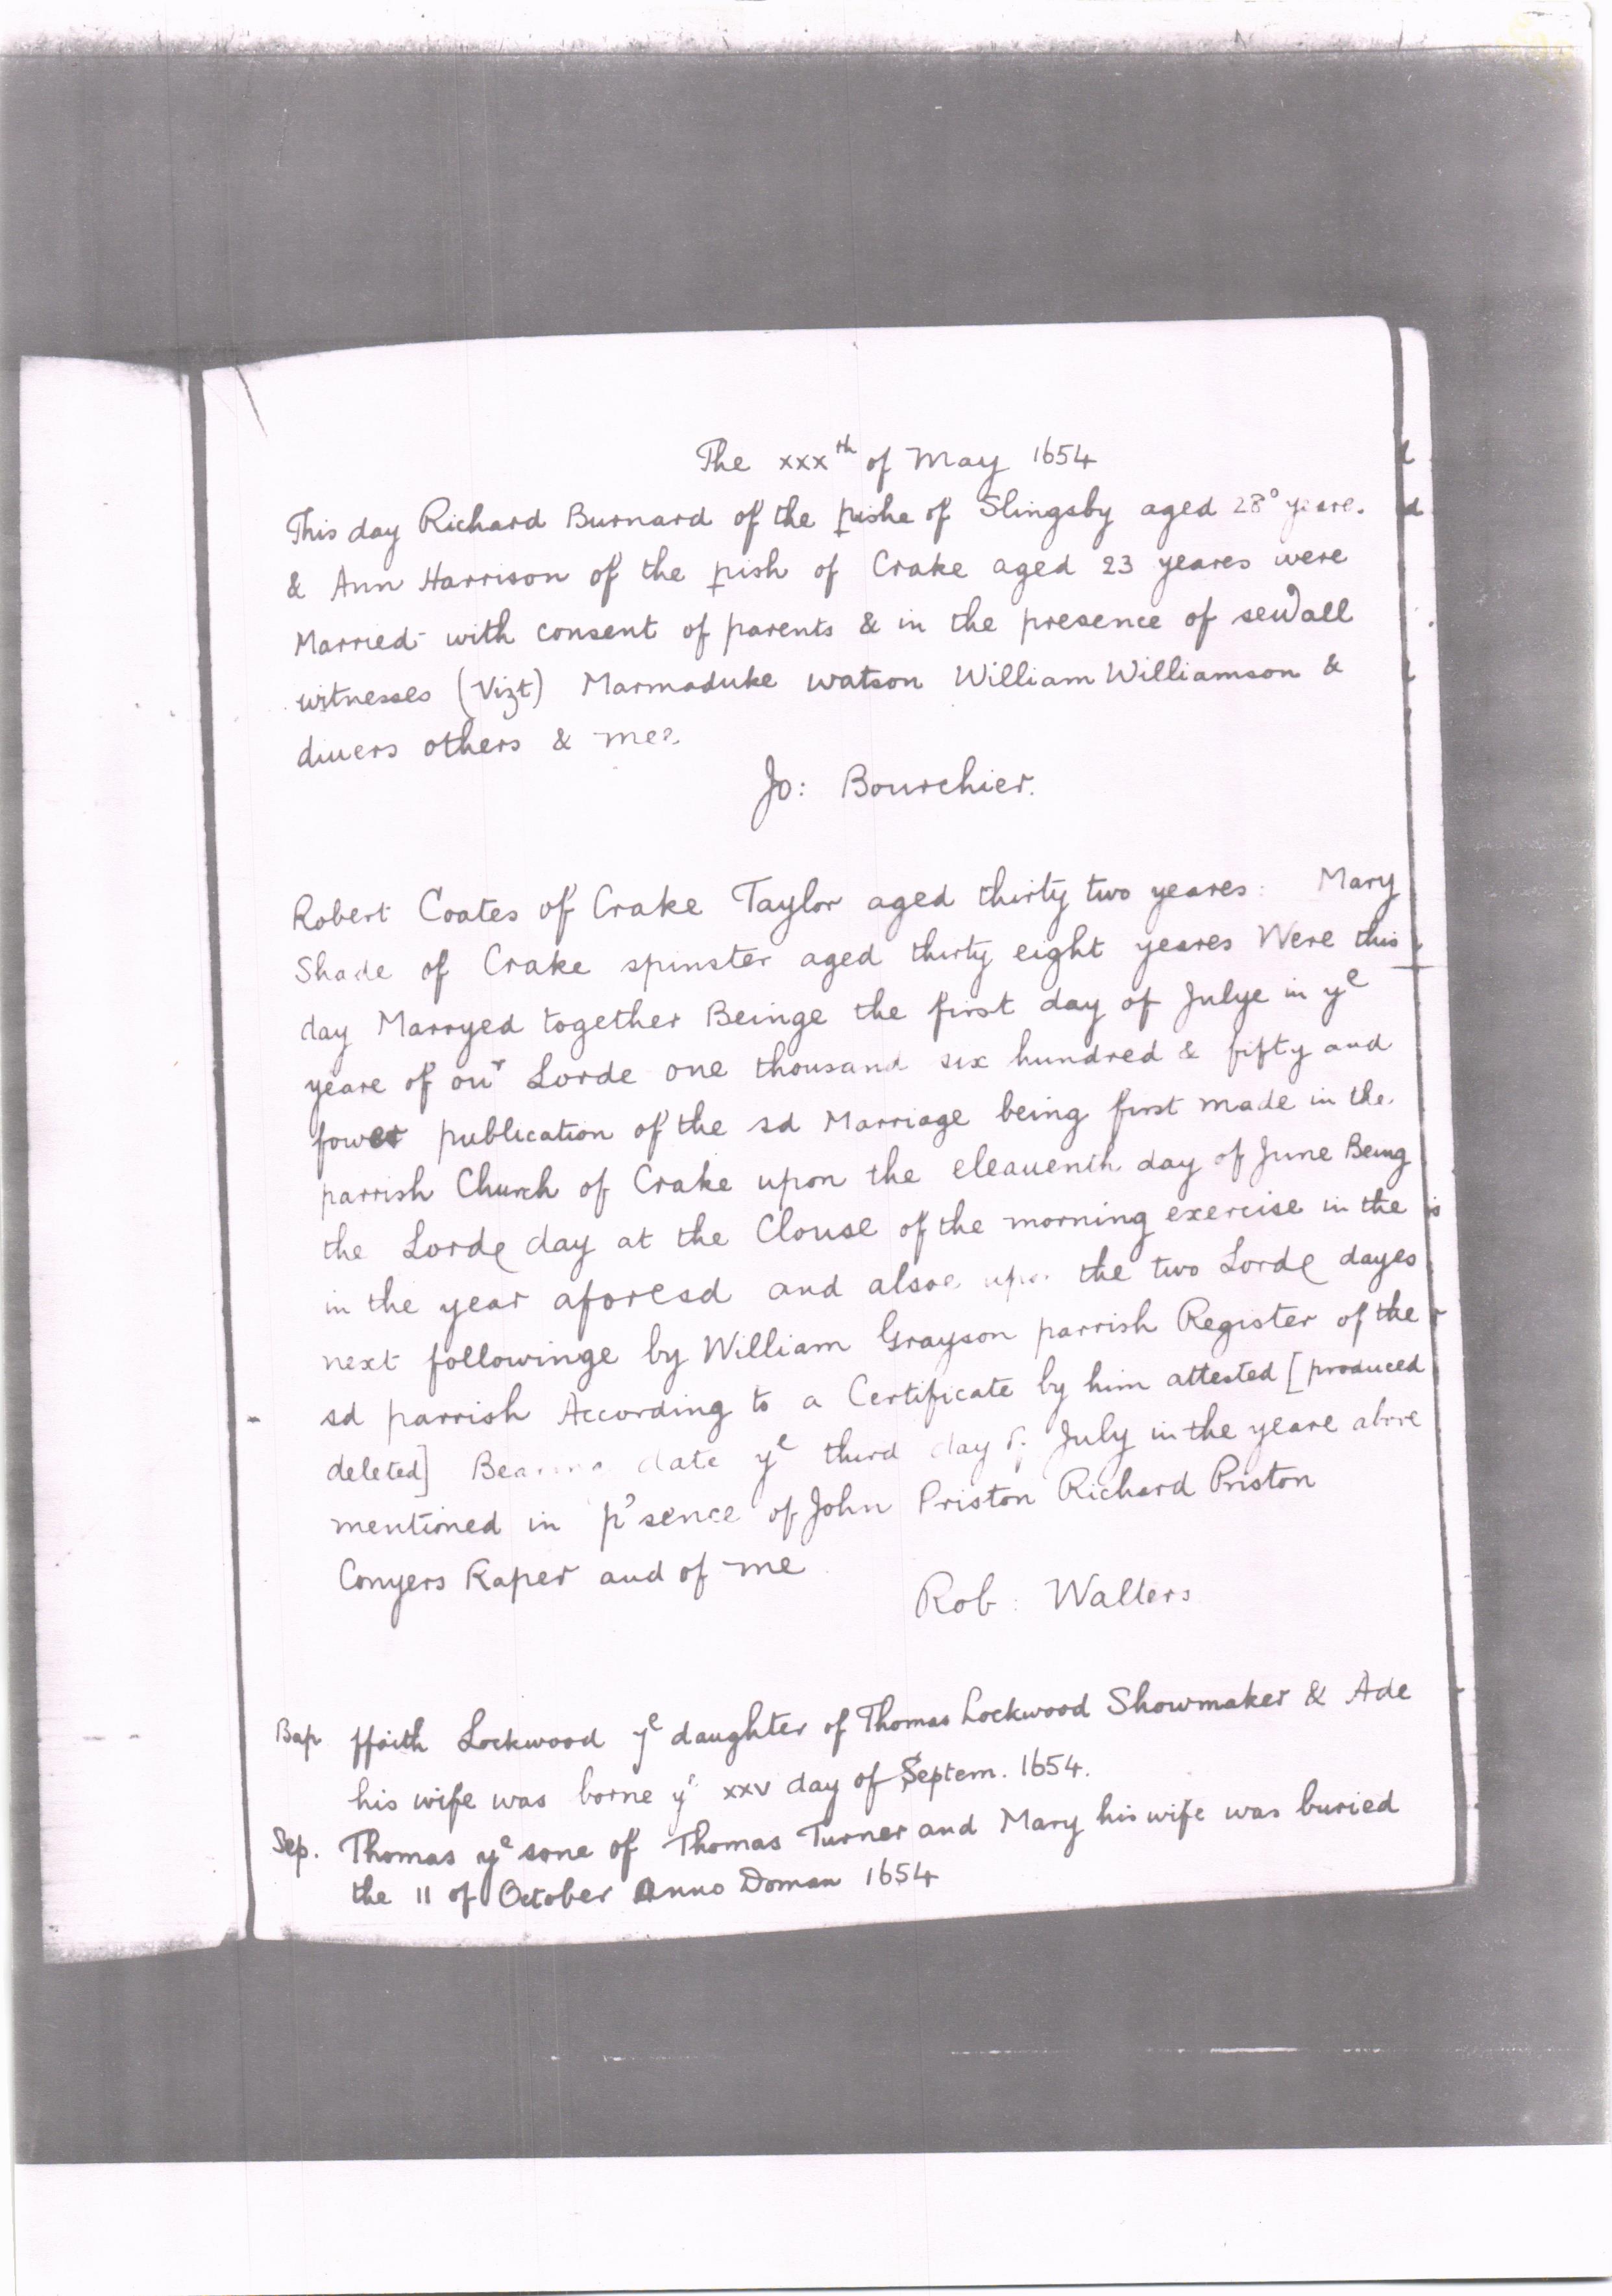 The xxxth of May 1654
This day Richard Burnard of the pishe of Slingsby aged 28° yeare.
& Ann Harrison of the pish of Crake aged 23 yeares were
Married with consent of parents & in the presence of seuall
witnesses (Vizt) Marmaduke watson William Williamson &
diuers others & mee.
Jo: Bourchier.
Robert Coates of Crake Taylor aged thirty two yeares: Mary
Shade of Crake spinster aged thirty eight yeares Were this
day Marryed together Beinge the first day of Julye in ye
yeare of our Lorde one thousand six hundred & fifty and
fower publication of the sd Marriage being first made in the
parrish Church of Crake upon the eleauenth day of June Being
the Lorde day at the Clouse of the morning exercise in the
in the year aforesd and alsoe upon the two Lorde dayes
next followinge by William Grayson parrish Register of the
sd parrish According to a Certificate by him attested [produced
deleted] Bearing date ye third day of July in the yeare above
mentioned in p'sence of John Priston Richard Priston
Conyers Raper and of me
Rob: Walters
Bap ffaith Lockwood ye daughter of Thomas Lockwood Showmaker & Ade
his wife was borne ye xxv day of Septem. 1654.
Sep. Thomas ye sone of Thomas Turner and Mary his wife was buried
the 11 of October Anno Doman 1654